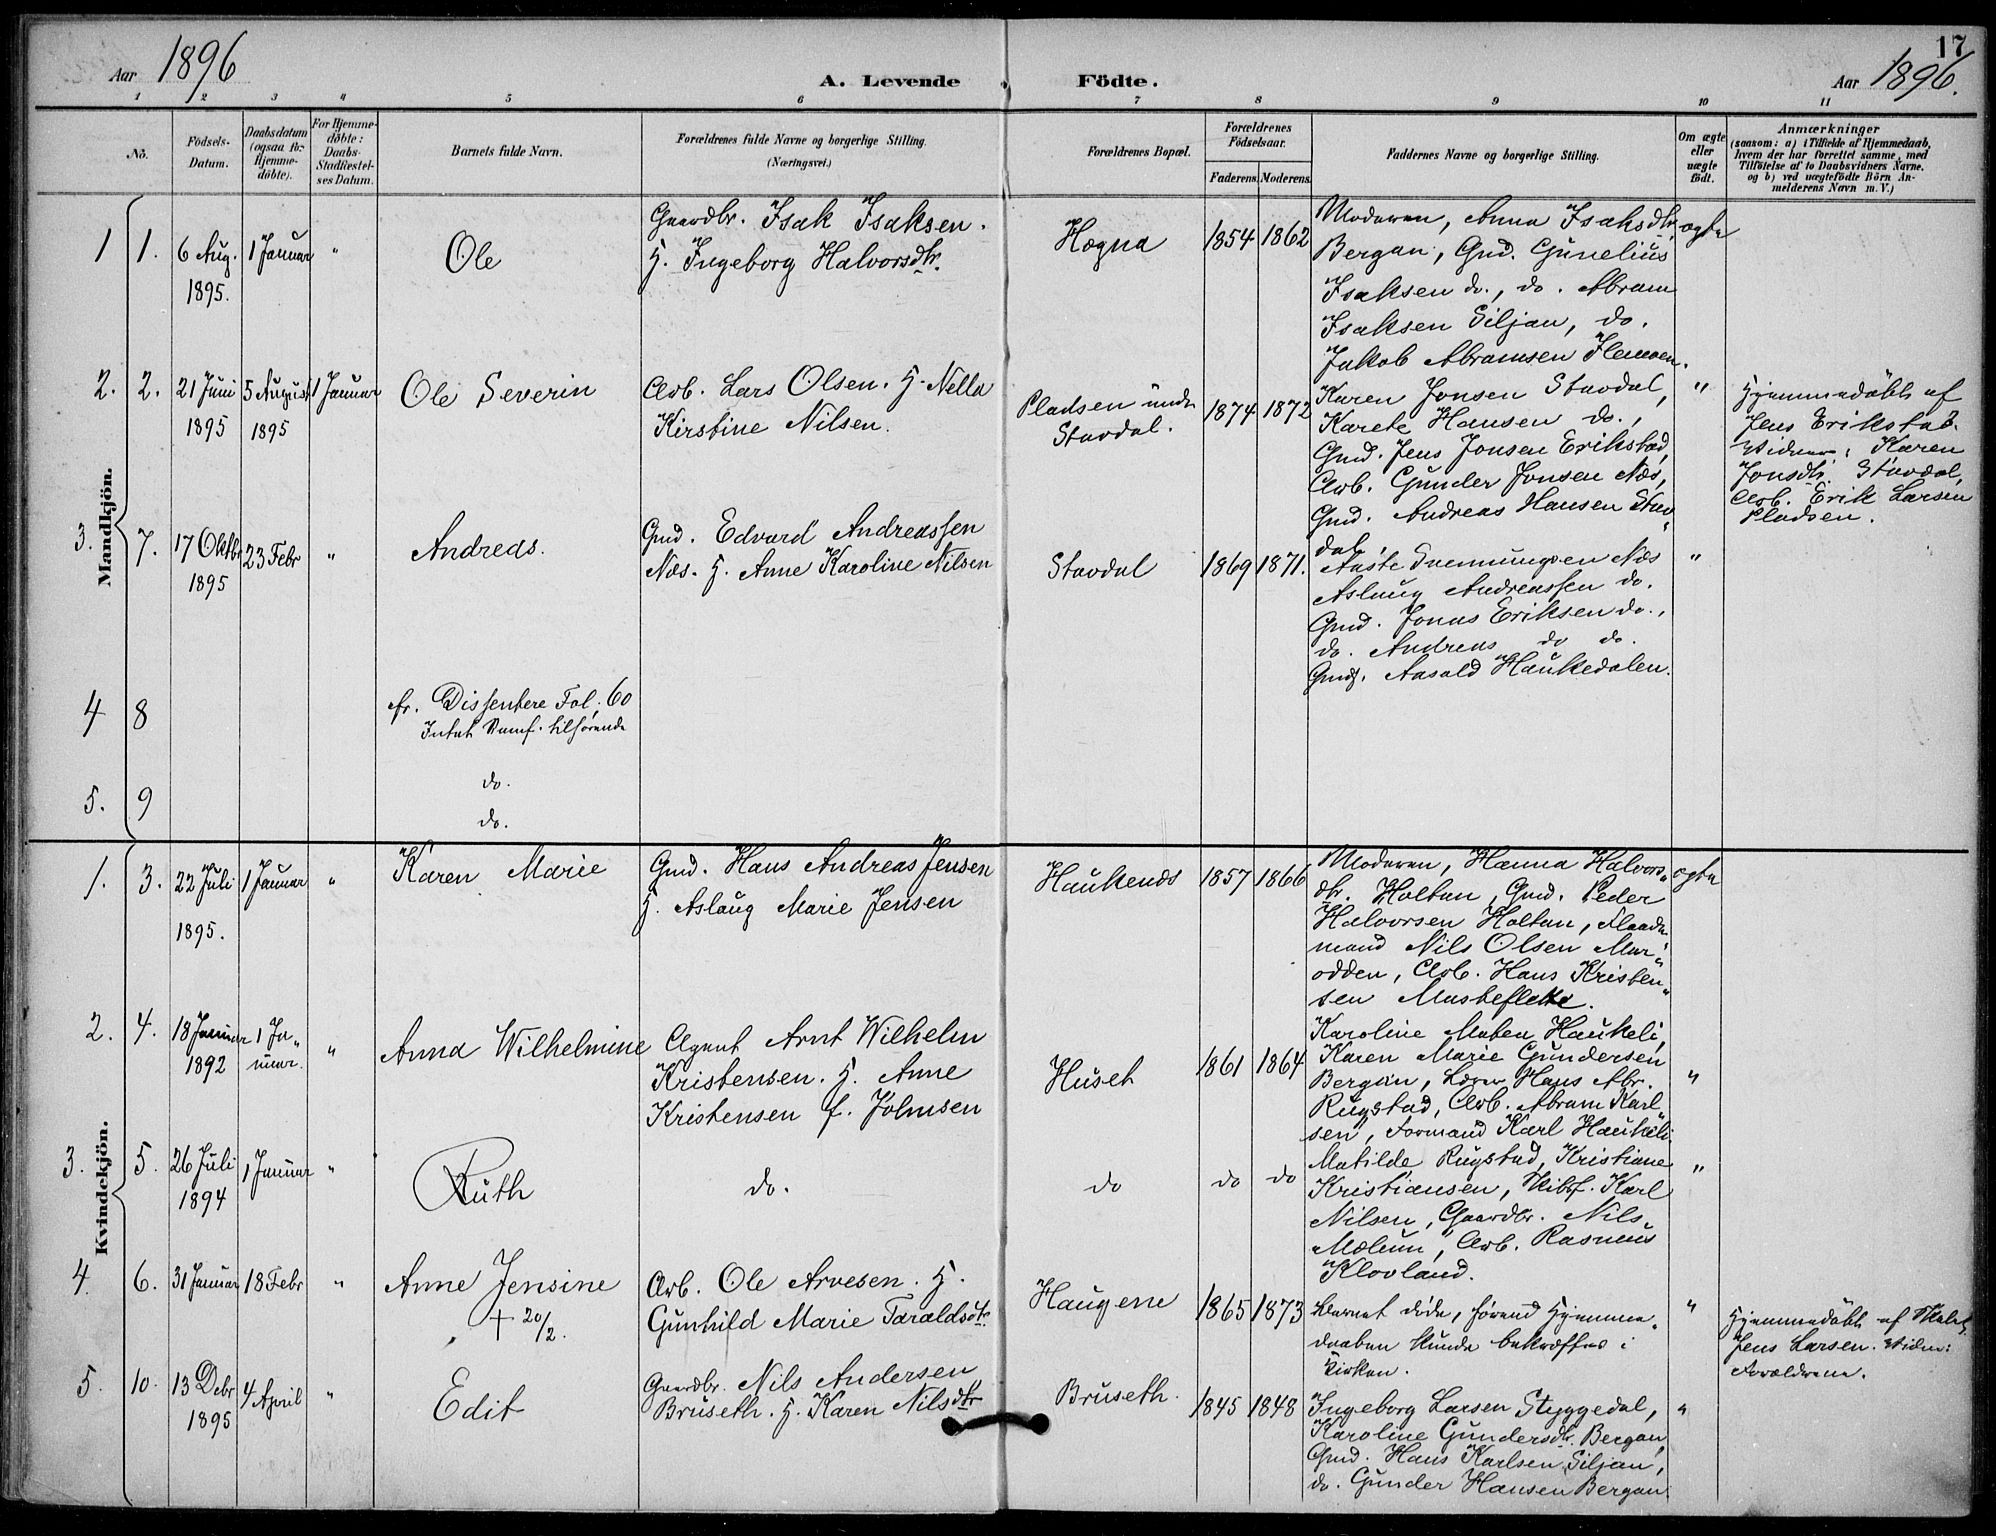 17
Aar 1896
A. Levende Födte.
Aar 1896.
1 2 3 4 5 6 7 8 9 10 11
No.
Födsels-Datum.
Daabsdatum (ogsaa for Hjemme-döbte).
For Hjemme-döbte: Daabs-Stadfæstel-ses Datum.
Barnets fulde Navn.
Forældrenes fulde Navne og borgerlige Stilling.
(Næringsvei.)
Forældrenes Bopæl.
Forældrenes Födselsaar.
Faderens. Moderens.
Faddernes Navne og borgerlige Stilling.
Om ægte eller uægte födt.
Anmærkninger
(saasom: a) i Tilfælde af Hjemmedaab,
hvem der har forrettet samme, med
Tilföielse af to Daabsvidners Navne.
og b) ved uægtefödte Börn An-
melderens Navn m. V.)
Mandkjön.
1 1. 6 Aug. 1895. 1 Januar " Ole
Gaardbr. Isak Isaksen.
H. Ingeborg Halvorsdtr.
Høgna 1854 1862
Moderen, Anna Isaksdtr.
Bergan, Gmd. Gunelius
Isaksen do., do. Abram
Isaksen Siljan, do.
Jakob Abramsen Flemoen.
ægte
2. 2. 21 Juni 1895 5 August 1895 1 Januar Ole Severin
Arb. Lars Olsen. H. Nella
Kirstine Nilsen.
Pladsen under
Stavdal. 1874 1872
Karen Jonsen Stavdal,
Karete Hansen do.,
Gmd. Jens Jonsen Erikstad,
Arb. Gunder Jonsen Næs,
Gmd. Andreas Hansen Stav"
dal.
"
Hjemmedöbt af
Jens Erikstad.
Vidner: Karen
Jonsdtr. Stavdal,
Arb. Erik Larsen
Pladsen.
3. 7. 17 Oktbr 1895 23 Febr " Andreas.
Gmd. Edvard Andreassen
Næs. H. Anne Karoline Nilsen
Stavdal 1869 1871.
Aaste Svennungsen Næs
Aslaug Andreassen do.
Gmd. Jonas Eriksen do.,
do. Andreas do do.
Gmd. Aasold Haukedalen.
"
4 8
fr. Dissentere Fol. 60
tilhørende
do.
5. 9
do.
Kvindekjön.
1. 3. 22 Juli 1895. 1 Januar " Karen Marie
Gmd. Hans Andreas Jensen
H. Aslaug Marie Jensen
Haukenæs 1857 1866
Moderen, Hanna Halvors"
dtr. Holtan, Gmd. Peder
Halvorsen Holtan, Flaade
mand Nils Olsen Mar"
odden, Arb. Hans Kristen"
sen Masteflette.
ægte
2. 4. 18 Januar 1892 1 Ja"
nuar. " Anna Wilhelmine
Agent Arnt Wilhelm
Kristensen. H. Anne
Kristensen f. Johnsen
Huset 1861 1864
Karoline Maten Haukeli,
Karen Marie Gundersen
Bergan, Lærer Hans Abr.
Rugstad, Arb. Abram Karl"
sen, Formand Karl Haukeli.
"
3. 5. 26 Juli 1894 1 Januar " Ruth
do. do do do
Matilde Rugstad, Kristiane
Kristiansen, Skibsf. Karl
Nilsen, Gaardbr. Nils
Mælum, Arb. Rasmus
Klovland.
"
4. 6. 31 Januar 18 Febr " Anne Jensine
+ 20/2.
Arb. Ole Arvesen. H.
Gunhild Marie Taraldsdtr.
Haugene 1865 1873
Barnet døde, førend Hjemme"
daaben kunde bekræftes i
Kirken.
"
Hjemmedöbt af
Jens Larsen. Vidn:
Forældrene.
5. 10. 13 Debr 1895 4 April " Edit
Gaardbr. Nils Andersen
Bruseth. H. Karen Nilsdtr
Bruseth. 1845 1848
Ingeborg Larsen Styggedal,
Karoline Gundersdtr. Bergan,
Gmd. Hans Karlsen Siljan,
do. Gunder Hansen Bergan.
"